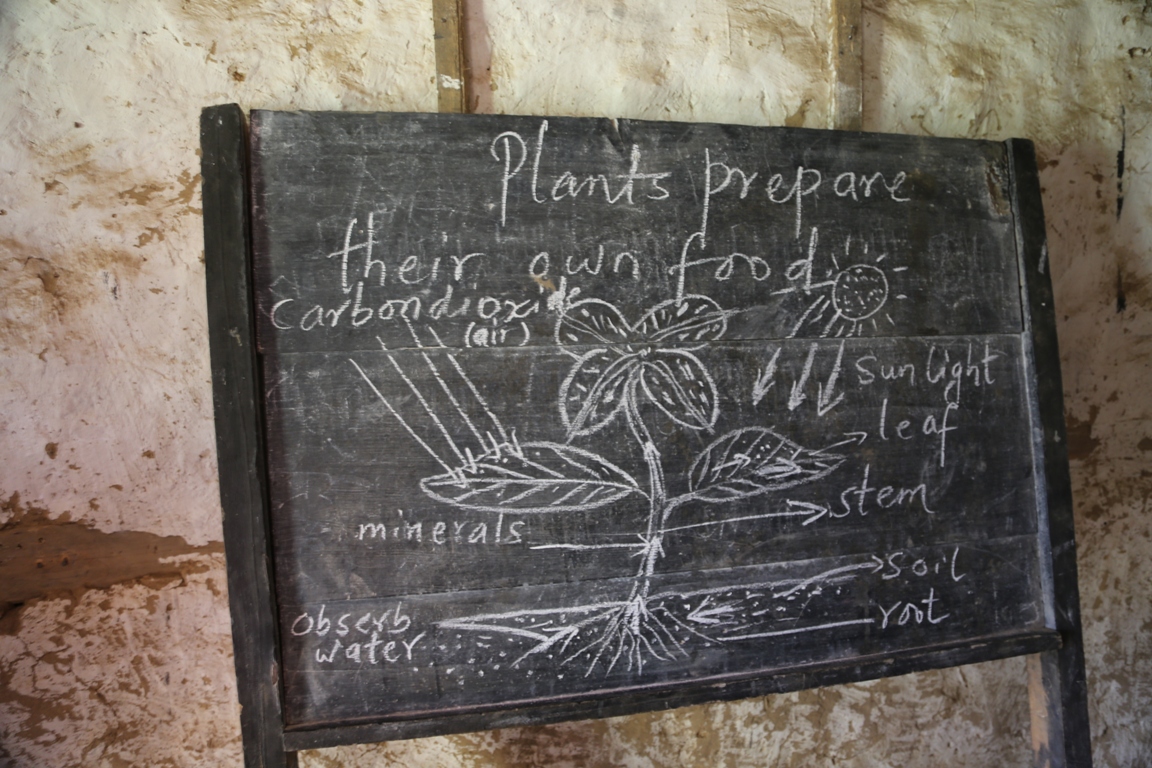 Plants prepare
their own food
carbondioxide
(air)
Sun light
leaf
stem
minerals
soil
root
obserb
water